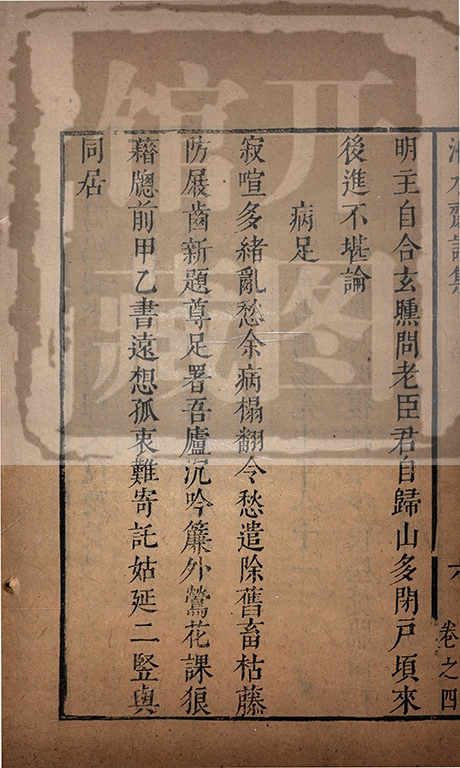 明主自合玄纁問老臣君自歸山多閉戸頃來
後進不堪論
病足
寂喧多緒亂愁余病榻翻令愁遣除舊畜枯藤
防屐齒新題尊足署吾廬沉吟簾外鶯花課狼
藉牕前甲乙書遠想孤衷難寄託姑延二豎與
同居
卷之四